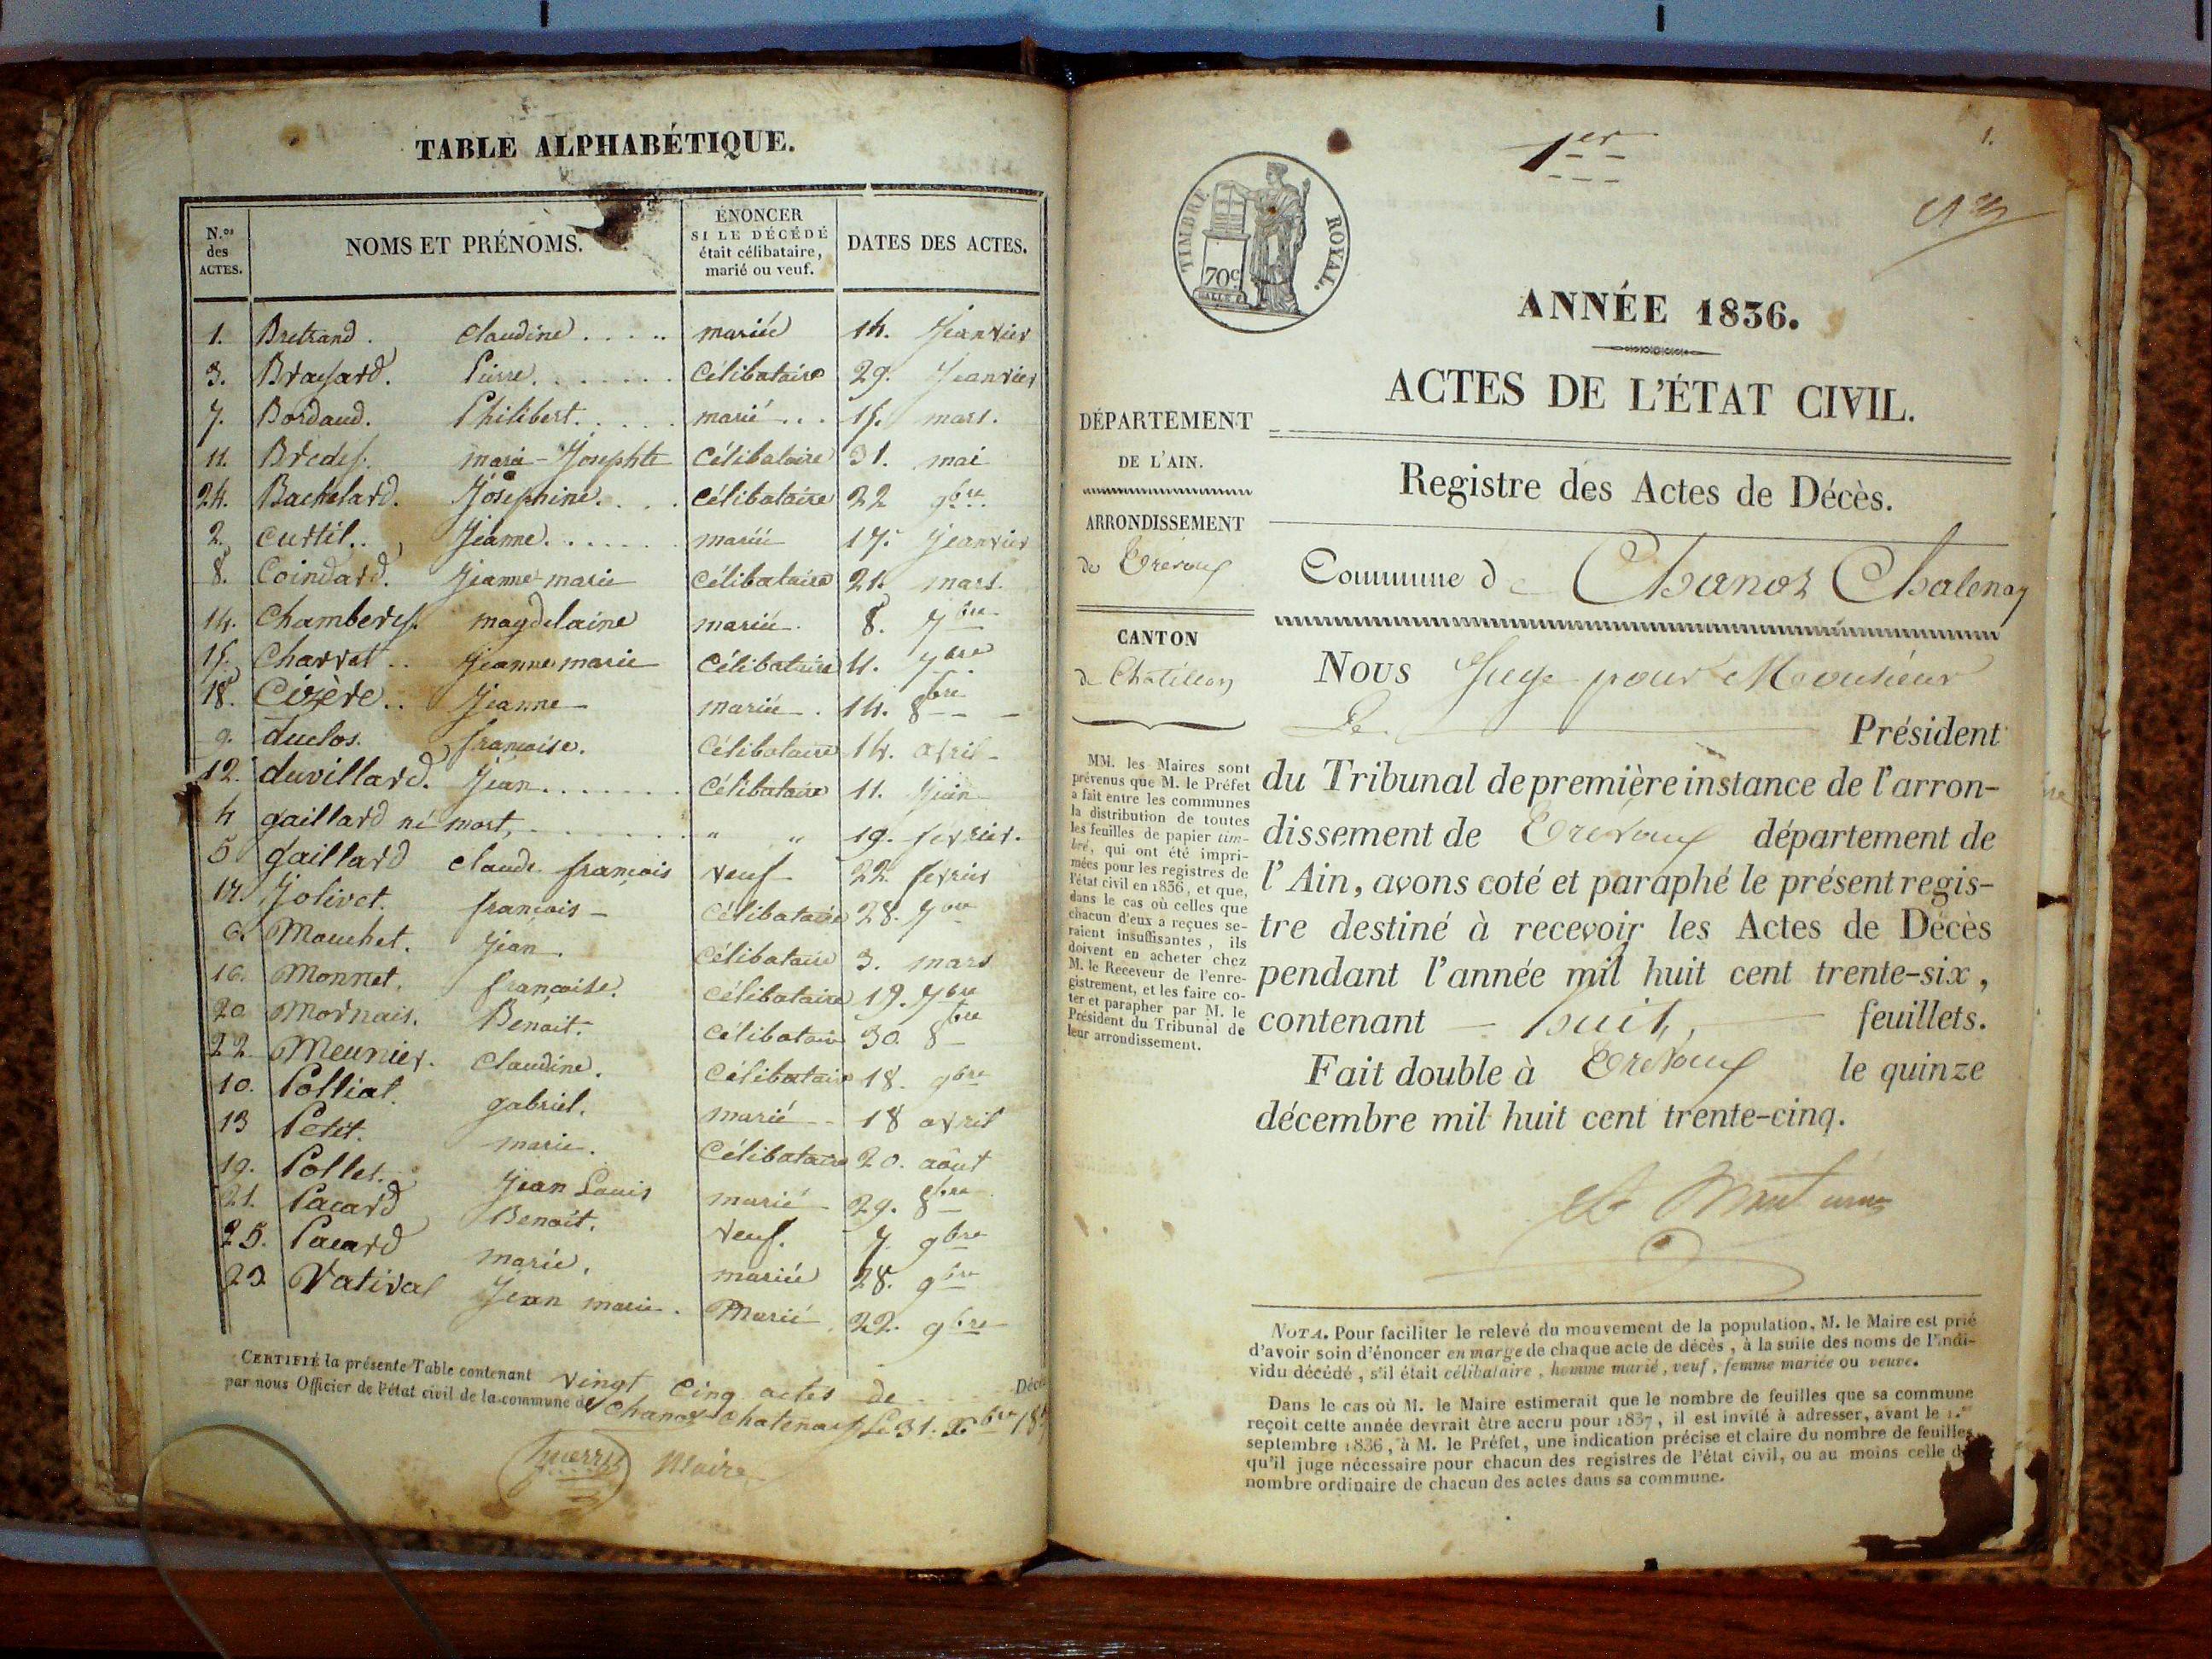 TABLE ALPHABÉTIQUE.
N.os des ACTES.
NOMS ET PRÉNOMS.
ÉNONCER SI LE DÉCÉDÉ était célibataire, marié ou veuf.
DATES DES ACTES.
1. Bretrand. Claudine mariée 14. Jeanvier
3. Brayard. Pierre. Célibataire 29. Jeanvier
7. Bordaud. Philibert. marié 15. mars.
11. Bredy. marie-Josephte Célibataire 31. mai
24. Bachelard. Joséphine. Célibataire 22 9bre
2. Curtil. Jeanne. mariée 17. Jeanvier
8. Coindard. Jeanne marie Célibataire 21. mars.
14. Chambery. magdelaine mariée. 8. 7bre
15. Charvet Jeanne marie Célibataire 11. 7bre
18. Cizère. Jeanne mariée. 14. 8bre
9. duclos. françoise. Célibataire 14. avril
12. duvillard. Jean Célibataire 11. Juin
4 gaillard né mort, " " 19. fevrier.
5 gaillard claude françois veuf 22 fevrier
17. Jolivet. françois Célibataire 28. 7bre
6. Mouchet. Jean. Célibataire 3. mars
16. Monnet. françoise. Célibataire 19. 7bre
20 Mornais. Benoit. Célibataire 30. 8bre
22 Meunier. Claudine. Célibataire 18. 9bre
10. Polliat. gabriel. marié 18 avril
13 Petit. marie. Célibataire 20. août
19. Pollet. Jean Louis marié 29. 8bre
21. Pacard Benoit. Veuf. 7. 9bre
25. Pacard marie. mariée 28. 9bre
23. Vatival Jean marie. Marié 22. 9bre
CERTIFIÉ la présente Table contenant vingt cinq actes de Décè
par nous Officier de l'état civil de la commune de Chanoz Chatenay Le 31. Xbre 18
Maire
1er
1.
TIMBRE ROYAL.
70c
ANNÉE 1836.
ACTES DE L'ÉTAT CIVIL.
DÉPARTEMENT
DE L'AIN.
ARRONDISSEMENT
de Trévoux
CANTON
de Chatillon
MM. les Maires sont
prévenus que M. le Préfet
a fait entre les communes
la distribution de toutes
les feuilles de papier tim-
bré, qui ont été impri-
mées pour les registres de
l'état civil en 1836, et que,
dans le cas où celles que
chacun d'eux a reçues se-
raient insuffisantes, ils
doivent en acheter chez
M. le Receveur de l'enre-
gistrement, et les faire co-
ter et parapher par M. le
Président du Tribunal de
leur arrondissement.
Registre des Actes de Décès.
Commune de Chanoz Chatenay
Nous Juge pour Monsieur
Le Président
du Tribunal de première instance de l'arron-
dissement de Trévoux département de
l'Ain, avons coté et paraphé le présent regis-
tre destiné à recevoir les Actes de Décès
pendant l'année mil huit cent trente-six,
contenant huit, feuillets.
Fait double à Trévoux le quinze
décembre mil huit cent trente-cinq.
NOTA. Pour faciliter le relevé du mouvement de la population, M. le Maire est prié
d'avoir soin d'énoncer en marge de chaque acte de décès, à la suite des noms de l'indi-
vidu décédé, s'il était célibataire, homme marié, veuf, femme mariée ou veuve.
Dans le cas où M. le Maire estimerait que le nombre de feuilles que sa commune
reçoit cette année devrait être accru pour 1837, il est invité à adresser, avant le 1.er
septembre 1836, à M. le Préfet, une indication précise et claire du nombre de feuilles
qu'il juge nécessaire pour chacun des registres de l'état civil, ou au moins celle du
nombre ordinaire de chacun des actes dans sa commune.